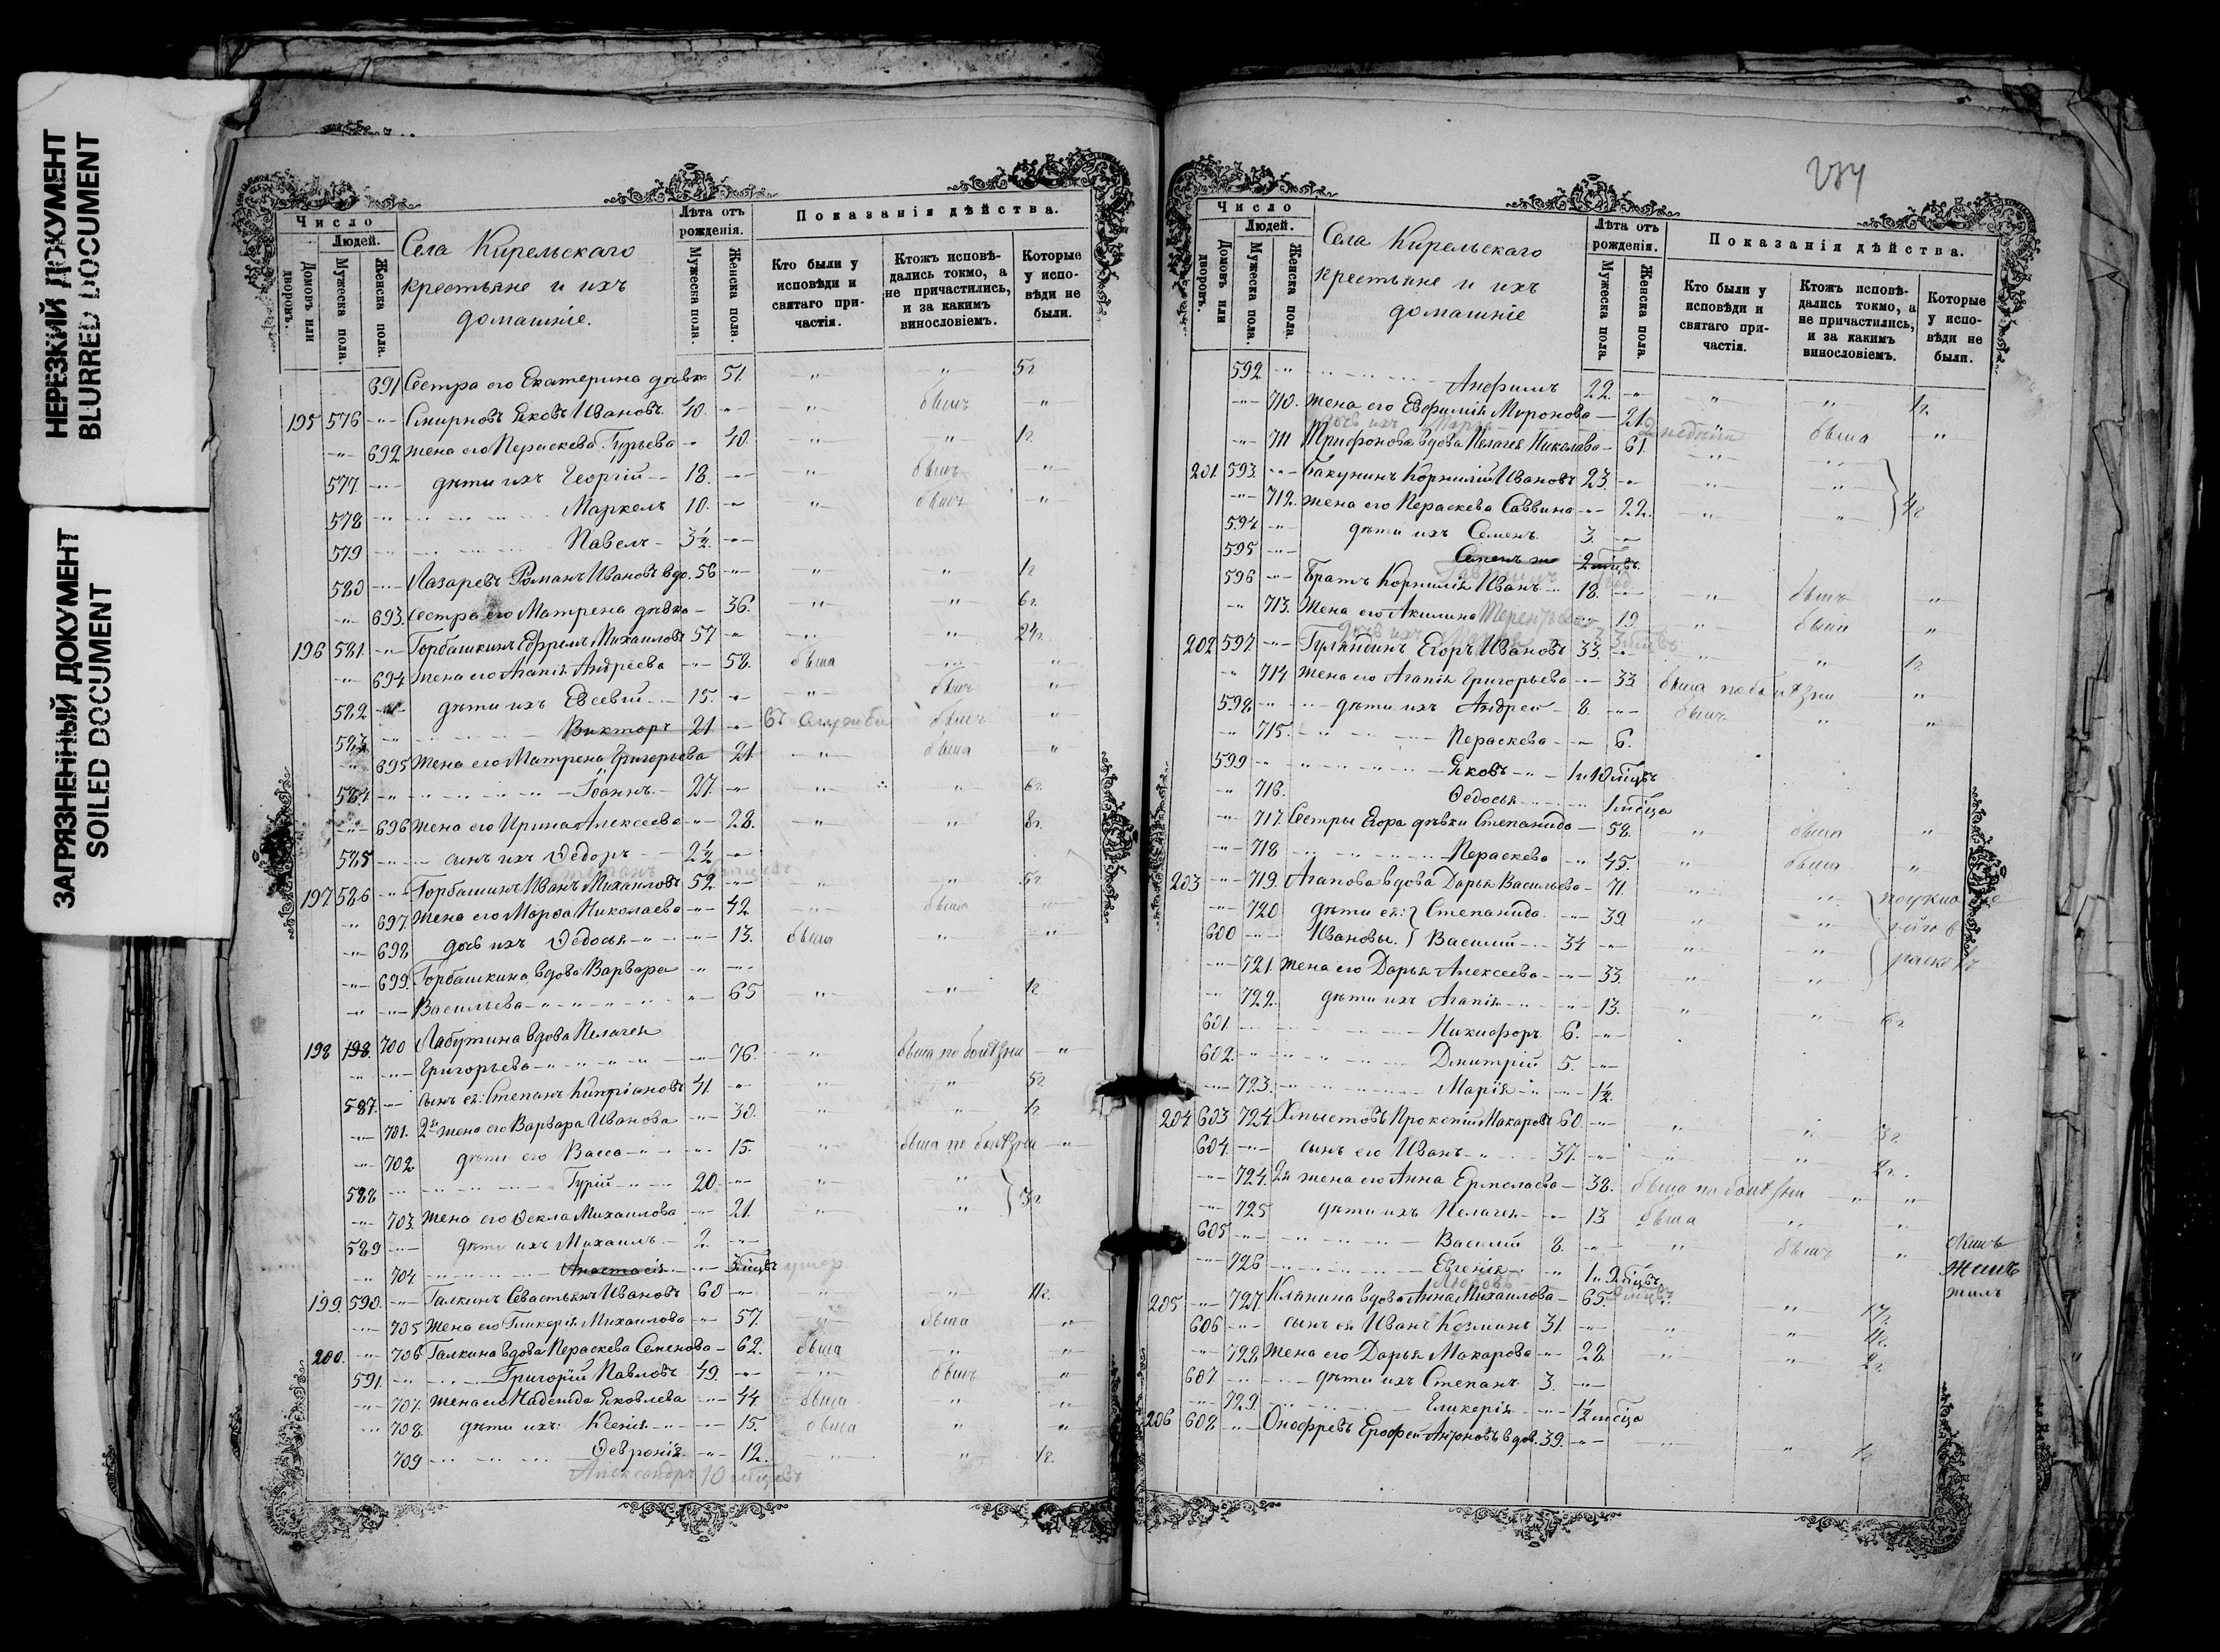 НЕРЕЗКИЙ ДОКУМЕНТ
BLURRED DOCUMENT
ЗАГРЯЗНЕННЫЙ ДОКУМЕНТ
SOILED DOCUMENT
Число
Людей.
Домовъ или дворовъ.
Мужеска пола.
Женска пола.
Села Кирельскаго
крестьяне и ихъ
домашніе.
Лѣта отъ рожденія.
Мужеска пола.
Женска пола.
Показанія дѣйства.
Кто были у исповѣди и святаго причастія.
Ктожъ исповѣдались токмо, а не причастились, и за какимъ винословіемъ.
Которые у исповѣди не были.
691 Сестра его Екатерина дѣвка 51. " " 5г
195 576 Смирновъ Яковъ Ивановъ. 40. " былъ "
692 жена его Пераскева Гурьева 40 " " 1г
577 дѣти ихъ Георгій 18. " былъ "
578 Маркелъ 10. " былъ "
579 Павелъ 3½
580 Лазаревъ Романъ Ивановъ вдо. 56 " " 1г
693. Сестра его Матрена дѣвка 36. " " 6г
196 581 Горбашкинъ Ефремъ Михаиловъ 57 " " 24г
694 жена его Агапія Андреева 58. была " "
582 дѣти ихъ Евсевій 15. " былъ "
583 Викторъ 21 въ службѣ былъ "
695 Жена его Матрена Григорьева 21 " была "
584 Іоаннъ 27. " " 6г
696 Жена его Ирина Алексеева 28. " " 8г
585 сынъ ихъ Ѳедоръ 2½
197 586 Горбашинъ Иванъ Михаиловъ 52. " " 5г
697. Жена его Марѳа Николаева 42 " была "
698 дочь ихъ Ѳедосья 13. была " "
699. Горбашкина вдова Варвара
Васильева 65 " " 1г
198 198. 700 Лабутина вдова Пелагея
Григорьева 76. " была по болѣзни "
587. сынъ ея: Степанъ Кипріановъ 41. " " 5г
701. 2я жена его Варвара Иванова 30. " " 1г
702 дѣти его Васса 15. " была по болѣзни "
588 Гурій 20. " " 3г
703 Жена его Ѳекла Михаилова 21. " "
589 дѣти ихъ Михаилъ 2.
704 Анастасія умер.
199. 590. Галкинъ Севастьянъ Ивановъ 60 " " 11г
705 Жена его Гликерія Михаилова 57. " была "
200. 706 Галкина вдова Пераскева Семенова 62. была " "
591. Григорій Павловъ 49. " былъ "
707. жена его Надежда Яковлева 44 была " "
708. дѣти ихъ: Ксенія 15. была " "
709 Ѳевронія 12. " " 1г.
Александръ 10 мѣцевъ
234
Число
Людей.
Домовъ или дворовъ.
Мужеска пола.
Женска пола.
Села Кирельскаго
крестьяне и ихъ
домашніе
Лѣта отъ рожденія.
Мужеска пола.
Женска пола.
Показанія дѣйства.
Кто были у исповѣди и святаго причастія.
Ктожъ исповѣдались токмо, а не причастились, и за какимъ винословіемъ.
Которые у исповѣди не были.
592 Анфимъ 22. " " 1г
710. Жена его Евфимія Миронова 21
дочь ихъ Марѳа 2 недѣли
711 Трифонова вдова Пелагея Николаева 61. " была "
201. 593. Бакунинъ Корнилій Ивановъ 23. " "
712. Жена его Пераскева Саввина 22. " " 4г
594 дѣти ихъ Семенъ 3.
595 2 мѣцъ.
596 Братъ Корнилія Иванъ 18. " былъ "
713. Жена его Акилина 19 " была "
дочь ихъ 3 мѣцъ
202 597 Гулындинъ Егоръ Ивановъ 33. " " 1г
714 Жена его Агапія Григорьева 33 была по болѣзни "
598 дѣти ихъ Андрей 8. былъ " "
715. Пераскева 6.
599 Яковъ 1 и 10 мѣцъ
716. Ѳедосья 1 мѣсца
717 Сестры Егора дѣвки Степанида 58. " была "
718 Пераскева 45. " была "
203 719. Агапова вдова Дарья Васильева 71 " "
720 дѣти ея: Степанида 39. " "
600 Ивановы. Василій 34 " "
721. Жена его Дарья Алексеева 33. " "
722. дѣти ихъ Агапія 13. " " 6г
601. Никифоръ 6.
602. Дмитрій 5.
723. Марія 1½.
204 603 724 Хлыстовъ Прокопій Макаровъ 60. " " 3г
604. сынъ его Иванъ 37. " " 2г.
724. 2я жена его Анна Ермолаева 38. была по болѣзни " "
725 дѣти ихъ Пелагея 13 была " "
605 Василій 8. " былъ "
726 Евгенія 1 и 2 мѣцъ
Любовь
205 727. Клянина вдова Анна Михаилова 65. " " 17г.
606 сынъ ея Иванъ Козминъ 31. " " 11г.
728 Жена его Дарья Макарова 28. " " 2г.
607. дѣти ихъ Степанъ 3.
729. Гликерія 1½ мѣсца
206 608. Онофревъ Ерофей Антоновъ вдов. 39. " " 1г